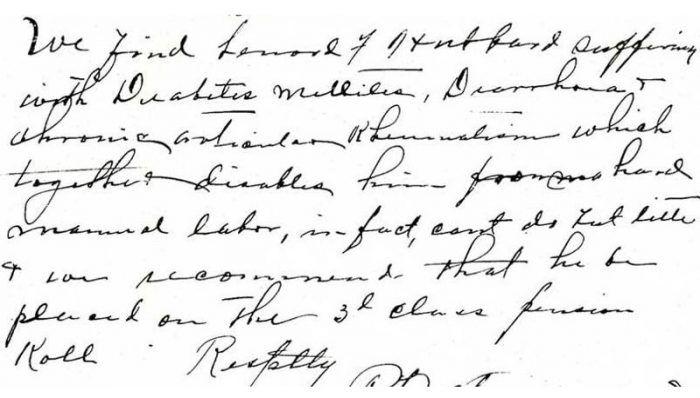 We find Lenard F Hubbard suffering
with Diabetis Mellites, Diarrhoea &
chronic articular Rheumatism which
together disables him from hard
manual labor, in fact, cant do but little
& we recommend that he be
placed on the 3d class pension
Roll Resptlly